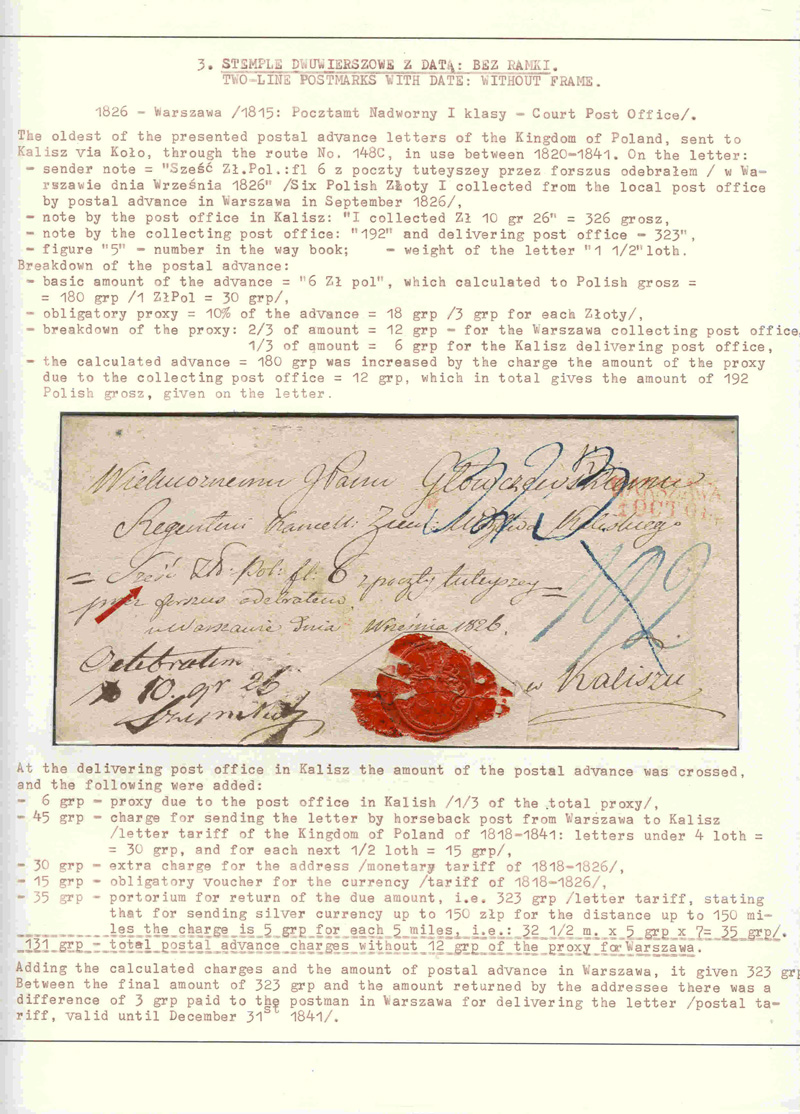 3. STEMPLE DWUWIERSZOWE Z DATĄ: BEZ RAMKI.
TWO-LINE POSTMARKS WITH DATE: WITHOUT FRAME.
1826 - Warszawa /1815: Pocztamt Nadworny I klasy - Court Post Office/.
The oldest of the presented postal advance letters of the Kingdom of Poland, sent to
Kalisz via Koło, through the route No. 148C, in use between 1820-1841. On the letter:
- sender note = "Sześć Zł.Pol.:fl 6 z poczty tuteyszey przez forszus odebrałem / w Wa-
rszawie dnia Września 1826" /Six Polish Złoty I collected from the local post office
by postal advance in Warszawa in September 1826/,
- note by the post office in Kalisz: "I collected Zł 10 gr 26" = 326 grosz,
- note by the collecting post office: "192" and delivering post office - 323",
- figure "5" - number in the way book; - weight of the letter "1 1/2" loth.
Breakdown of the postal advance:
- basic amount of the advance = "6 Zł pol", which calculated to Polish grosz =
= 180 grp /1 ZłPol = 30 grp/,
- obligatory proxy = 10% of the advance = 18 grp /3 grp for each Złoty/,
- breakdown of the proxy: 2/3 of amount = 12 grp - for the Warszawa collecting post office,
1/3 of amount = 6 grp for the Kalisz delivering post office,
- the calculated advance = 180 grp was increased by the charge the amount of the proxy
due to the collecting post office = 12 grp, which in total gives the amount of 192
Polish grosz, given on the letter.
Wielmożnemu JPanu
WARSZAWA
1 OCTO
323
Ziem:
= Sześć Zło: Pol: fl: 6 z poczty tuteyszey =
przez forszus odebrałem
w Warszawie Dnia Września 1826.
192
Odebrałem
10. gr 26
w Kaliszu
At the delivering post office in Kalisz the amount of the postal advance was crossed,
and the following were added:
- 6 grp - proxy due to the post office in Kalish /1/3 of the total proxy/,
- 45 grp - charge for sending the letter by horseback post from Warszawa to Kalisz
/letter tariff of the Kingdom of Poland of 1818-1841: letters under 4 loth =
= 30 grp, and for each next 1/2 loth = 15 grp/,
- 30 grp - extra charge for the address /monetary tariff of 1818-1826/,
- 15 grp - obligatory voucher for the currency /tariff of 1818-1826/,
- 35 grp - portorium for return of the due amount, i.e. 323 grp /letter tariff, stating
that for sending silver currency up to 150 złp for the distance up to 150 mi-
les the charge is 5 grp for each 5 miles, i.e.: 32 1/2 m. x 5 grp x 7= 35 grp/.
131 grp - total postal advance charges without 12 grp of the proxy for Warszawa.
Adding the calculated charges and the amount of postal advance in Warszawa, it given 323 grp
Between the final amount of 323 grp and the amount returned by the addressee there was a
difference of 3 grp paid to the postman in Warszawa for delivering the letter /postal ta-
riff, valid until December 31st 1841/.